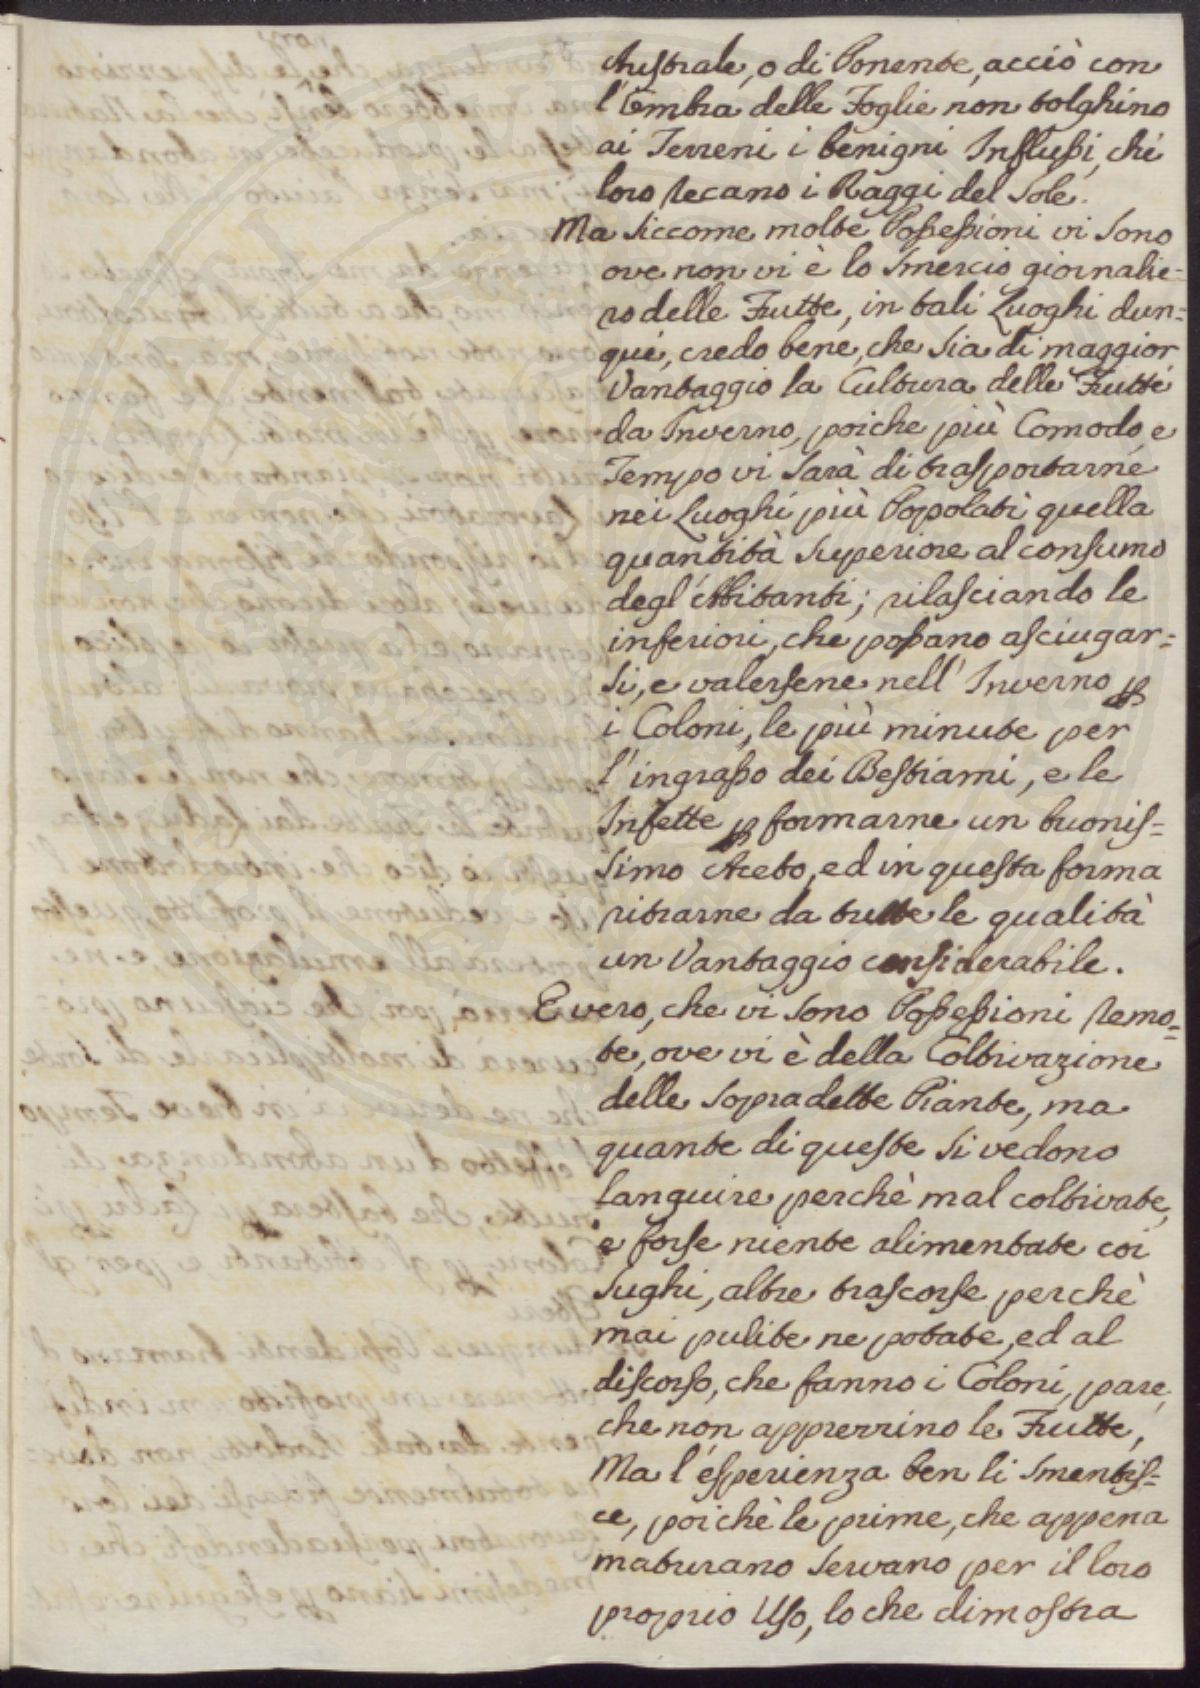 Australe, o di Ponente, acciò con
l'Ombra delle Foglie non tolghino
ai Terreni i benigni Influssi, che
loro recano i Raggi del Sole.
Ma siccome molte Possessioni vi sono
ove non vi è lo smercio giornalie=
ro delle Frutte, in tali Luoghi dun=
que, credo bene, che sia di maggior
Vantaggio la Cultura delle Frutte
da Inverno, poiche più Comodo, e
Tempo vi sarà di trasportarne
nei Luoghi più Popolati quella
quantità superiore al consumo
degl'Abitanti; rilasciando le
inferiori, che possano asciugar=
si, e valersene nell'Inverno p
i Coloni, le più minute per
l'ingrasso dei Bestiami, e le
Infette p formarne un buonis=
simo Aceto, ed in questa forma
ritrarne da tutte le qualità
un Vantaggio considerabile.
E vero, che vi sono Possessioni remo=
te, ove vi è della Coltivazione
delle sopradette Piante, ma
quante di queste si vedono
languire perchè mal coltivate,
e forse niente alimentate coi
sughi, altre trascorse perchè
mai pulite ne potate, ed al
discorso, che fanno i Coloni, pare,
che non apprezzino le Frutte,
Ma l'esperienza ben li smentis=
ce, poichè le prime, che appena
maturano servano per il loro
proprio Uso, lo che dimostra